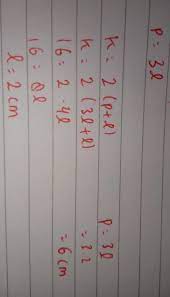 p = 3l
k = 2 (p+l)
k = 2 (3l+l)
16 = 2 . 4l
16 = 8l
l = 2 cm
p = 3l
= 3.2
= 6 cm